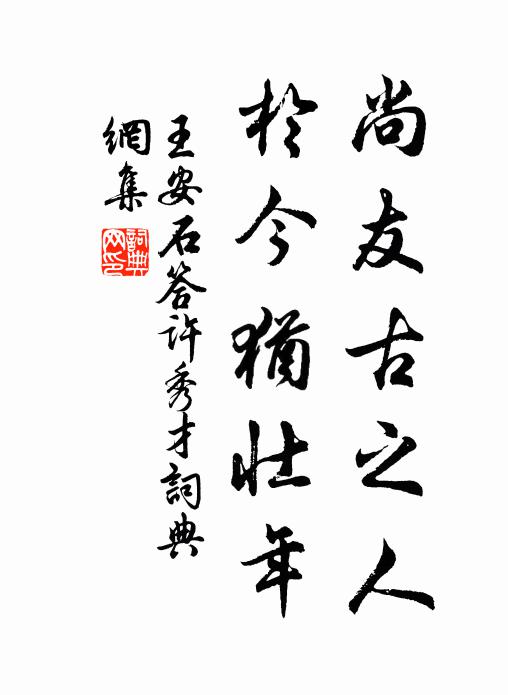 尚友古之人
於今猶壯年
王安石答許秀才詞典
網集
詞典
网印